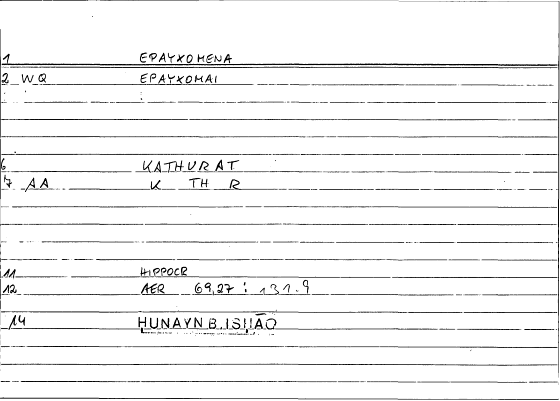 1 EPAYXOMENA
2 WQ EPAYXOMAI
6 KATHURAT
7 AA K TH R
11 HIPPOCR
12 AER 69,27 : 131.9
14 HUNAYN B. ISḤĀQ